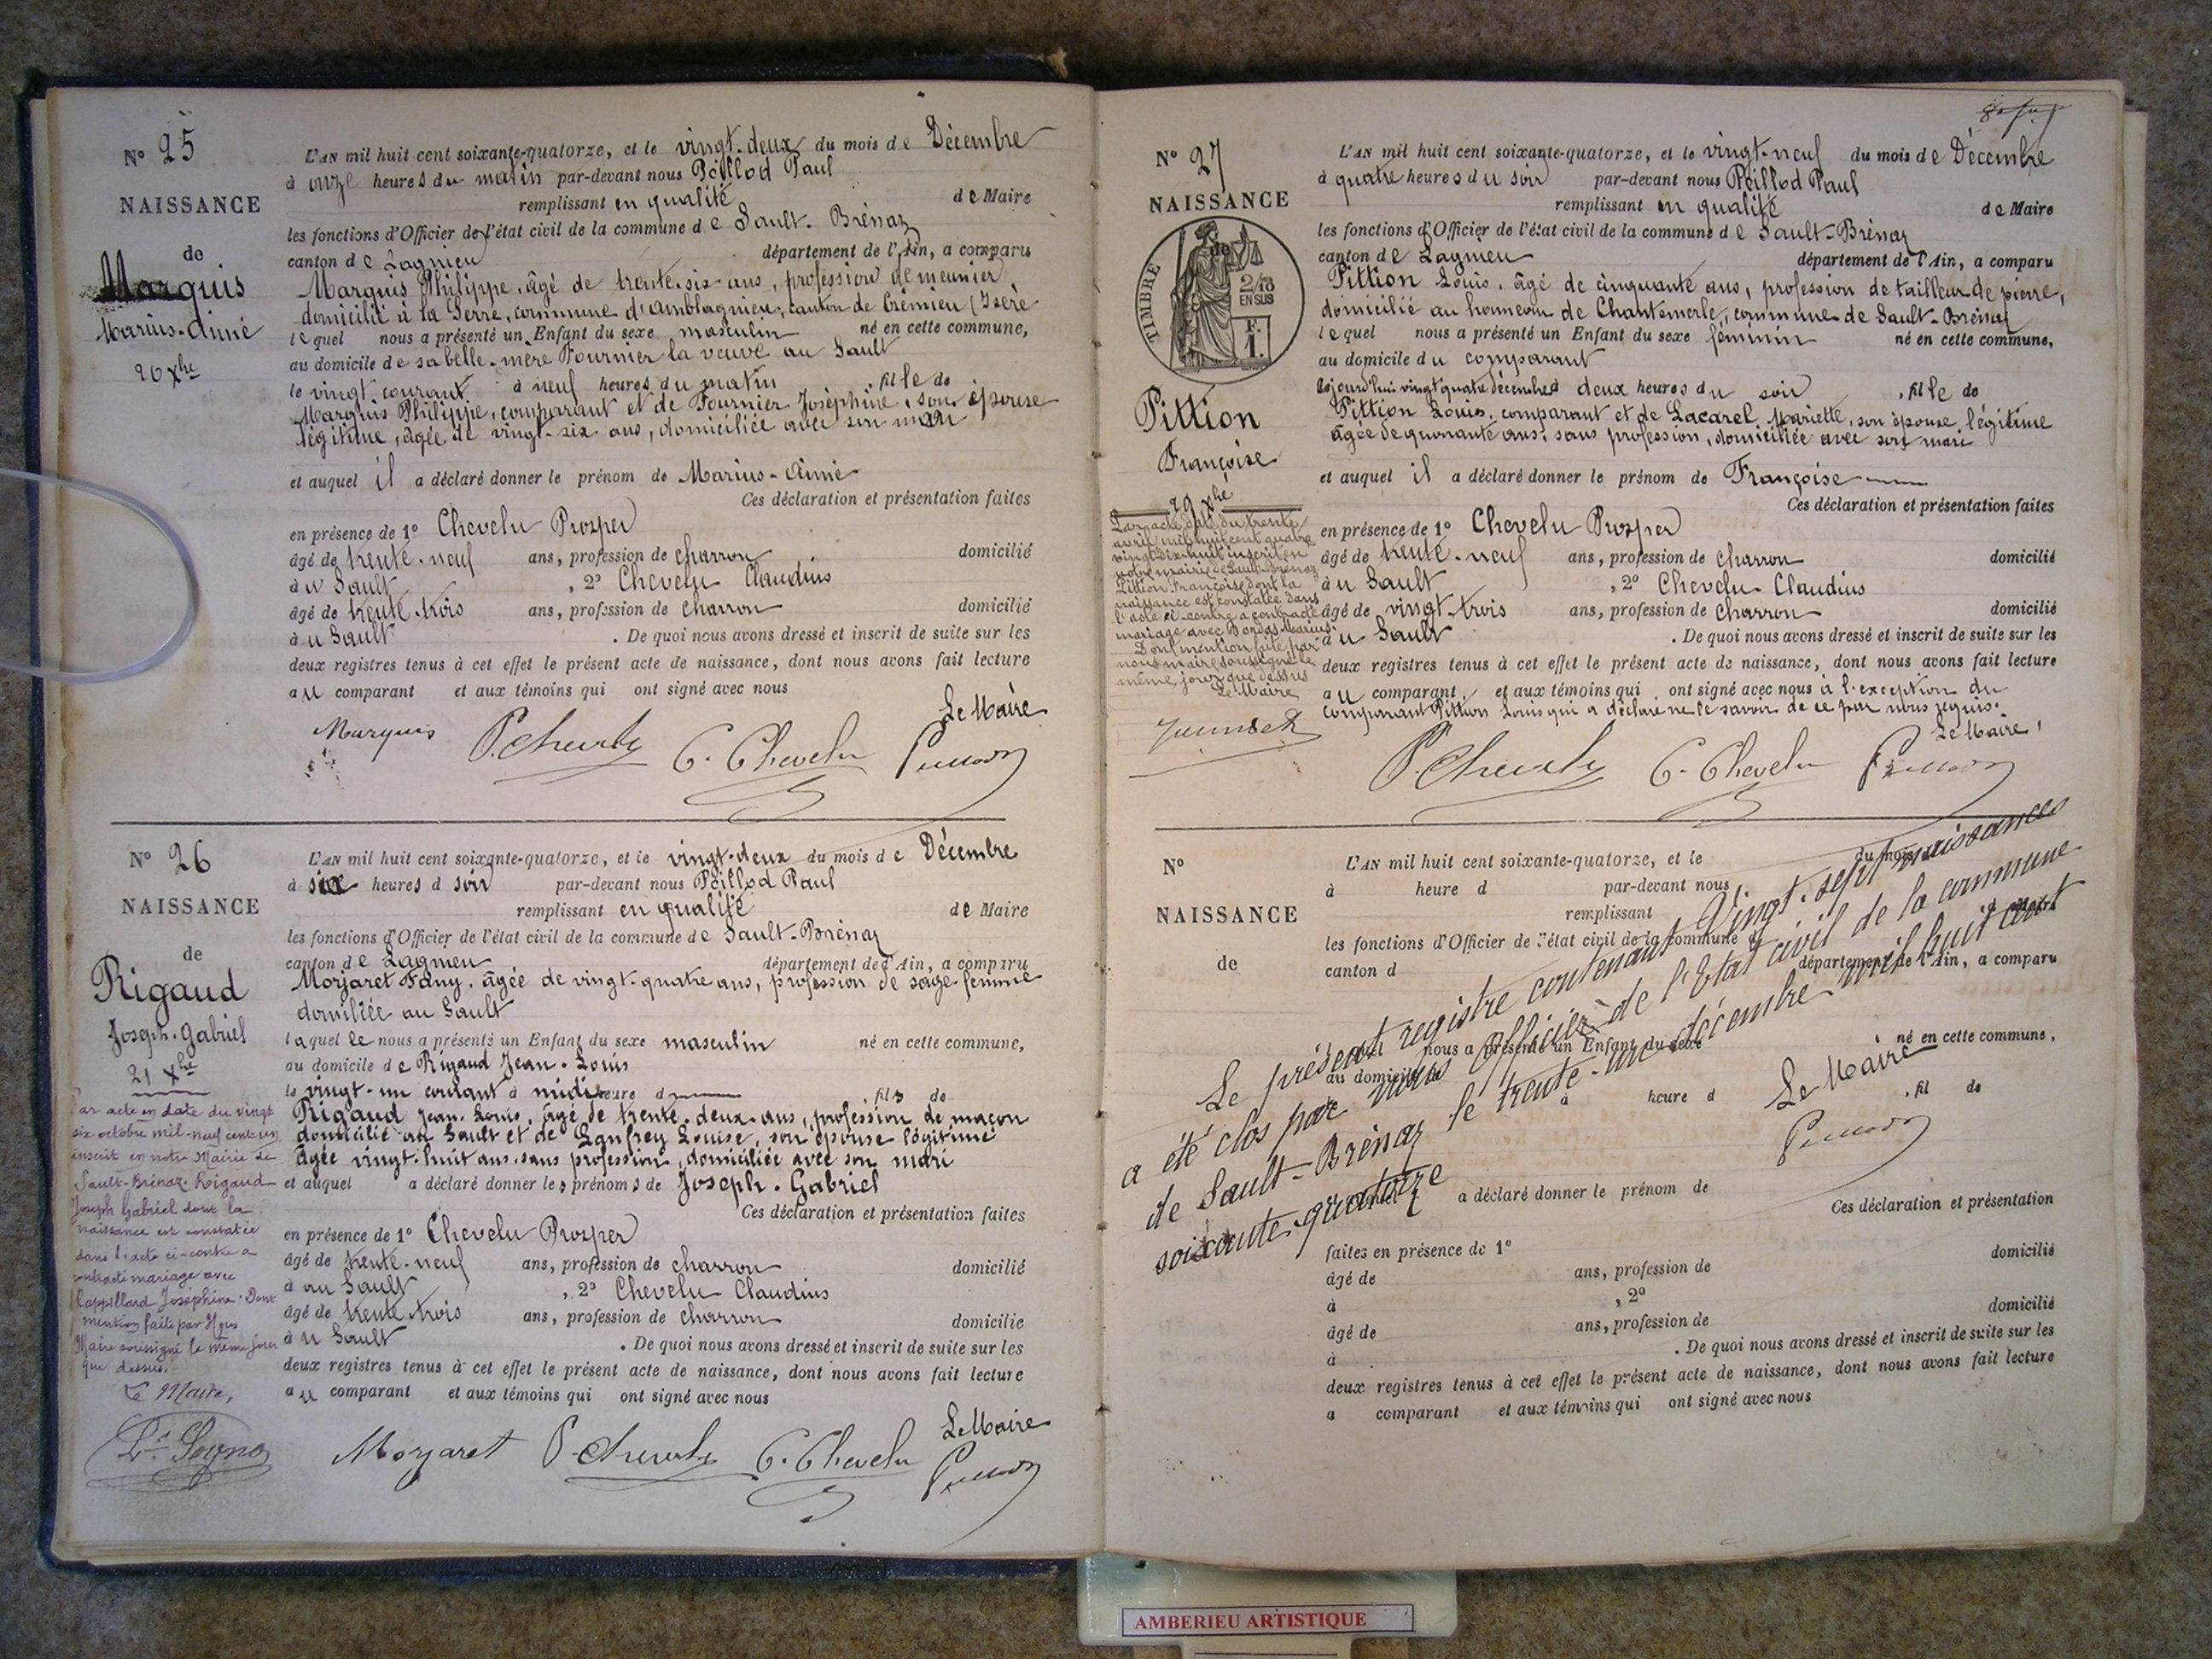 N° 25
NAISSANCE
de
Marquis
Marius-Aimé
20 Xbre
L'AN mil huit cent soixante-quatorze, et le vingt-deux du mois de Décembre
à onze heures du matin par-devant nous Poillod Paul
remplissant en qualité de Maire
les fonctions d'Officier de l'état civil de la commune de Sault-Brénaz
canton de Lagnieu département de l'Ain, a comparu
Marquis Philippe, âgé de trente-six ans, profession de meunier
domicilié à la Serre, commune d'Amblagnieu, canton de Crémieu (Isère
lequel nous a présenté un Enfant du sexe masculin né en cette commune,
au domicile de sa belle-mère Fournier la veuve au Sault
le vingt courant à neuf heures du matin, fille de
Marquis Philippe, comparant et de Fournier Joséphine, son épouse
légitime, âgée de vingt-six ans, domiciliée avec son mari
et auquel il a déclaré donner le prénom de Marius-Aimé
Ces déclaration et présentation faites
en présence de 1° Chevelu Prosper
âgé de trente-neuf ans, profession de charron domicilié
à u Sault, 2° Chevelu Claudius
âgé de trente-trois ans, profession de charron domicilié
à u Sault. De quoi nous avons dressé et inscrit de suite sur les
deux registres tenus à cet effet le présent acte de naissance, dont nous avons fait lecture
au comparant et aux témoins qui ont signé avec nous
Le Maire
Marquis P. Chevelu C. Chevelu
N° 26
NAISSANCE
de
Rigaud
Joseph-Gabriel
21 Xbre
Par acte en date du vingt
six octobre mil-neuf cent-un
inscrit en notre Mairie de
Sault-Brénaz. Rigaud
Joseph Gabriel dont la
naissance est constatée
dans l'acte ci-contre a
contracté mariage avec
Joséphine. Dont
mention faite par Nous
Maire soussigné le même jour
que dessus.
Le Maire,
L'AN mil huit cent soixante-quatorze, et le vingt-deux du mois de Décembre
à six heures d soir par-devant nous Poillod Paul
remplissant en qualité de Maire
les fonctions d'Officier de l'état civil de la commune de Sault-Brénaz
canton de Lagnieu département de l'Ain, a comparu
Morjaret Fany, âgée de vingt-quatre ans, profession de sage femme
domiliée au Sault
laquelle nous a présenté un Enfant du sexe masculin né en cette commune,
au domicile de Rigaud Jean-Louis
le vingt-un courant à midi heure d fils de
Rigaud Jean-Louis, âgé de trente-deux ans, profession de maçon
domicilié au Sault et de Lanfrey Louise, son épouse légitime
âgée vingt-huit ans, sans profession, domiciliée avec son mari
et auquel a déclaré donner les prénoms de Joseph-Gabriel
Ces déclaration et présentation faites
en présence de 1° Chevelu Prosper
âgé de trente-neuf ans, profession de charron domicilié
à au Sault, 2° Chevelu Claudius
âgé de trente-trois ans, profession de charron domicilié
à u Sault. De quoi nous avons dressé et inscrit de suite sur les
deux registres tenus à cet effet le présent acte de naissance, dont nous avons fait lecture
au comparant et aux témoins qui ont signé avec nous
Le Maire
Morjaret P. Chevelu C. Chevelu
N° 27
NAISSANCE
TIMBRE
2/10
EN SUS
F.
1.
Pittion
Françoise
29 Xbre
Par acte daté du trente
avril mil huit cent quatre
vingt-dix-huit inscrit en
notre mairie de Sault-Brénaz
Pittion Françoise dont la
naissance est constatée dans
l'acte ci-contre a contracté
mariage avec Marius.
Dont mention faite par
nous maire soussigné le
même jour que dessus
Le Maire
L'AN mil huit cent soixante-quatorze, et le vingt-neuf du mois de Décembre
à quatre heures du soir par-devant nous Poillod Paul
remplissant en qualité de Maire
les fonctions d'Officier de l'état civil de la commune de Sault-Brénaz
canton de Lagnieu département de l'Ain, a comparu
Pittion Louis, âgé de cinquante ans, profession de tailleur de pierre,
domicilié au hameau de Chantemerle, commune de Sault-Brénaz
lequel nous a présenté un Enfant du sexe féminin né en cette commune,
au domicile du comparant
aujourd'hui vingt quatre décembre à deux heures du soir, fille de
Pittion Louis, comparant et de Lacarel Mariette, son épouse légitime
âgée de quarante ans, sans profession, domiciliée avec son mari
et auquel il a déclaré donner le prénom de Françoise
Ces déclaration et présentation faites
en présence de 1° Chevelu Prosper
âgé de trente-neuf ans, profession de charron domicilié
à u Sault, 2° Chevelu Claudius
âgé de vingt-trois ans, profession de charron domicilié
à u Sault. De quoi nous avons dressé et inscrit de suite sur les
deux registres tenus à cet effet le présent acte de naissance, dont nous avons fait lecture
au comparant, et aux témoins qui ont signé avec nous à l'exception du
comparant Pittion Louis qui a déclaré ne le savoir de ce par nous requis.
Le Maire
P. Chevelu C. Chevelu
N°
NAISSANCE
de
L'AN mil huit cent soixante-quatorze, et le du mois d
à heure d par-devant nous
remplissant
les fonctions d'Officier de l'état civil de la commune d
canton d département de l'Ain, a comparu
nous a présenté un Enfant du sexe né en cette commune,
au domicile d
à heure d, fil de
a déclaré donner le prénom de
Ces déclaration et présentation
faites en présence de 1°
âgé de ans, profession de domicilié
à, 2°
âgé de ans, profession de domicilié
à. De quoi nous avons dressé et inscrit de suite sur les
deux registres tenus à cet effet le présent acte de naissance, dont nous avons fait lecture
a comparant et aux témoins qui ont signé avec nous
Le présent registre contenant Vingt-sept naissances
a été clos par nous Officier de l'Etat civil de la commune
de Sault-Brénaz le trente-un décembre mil huit cent
soixante-quatorze
Le Maire
AMBERIEU ARTISTIQUE